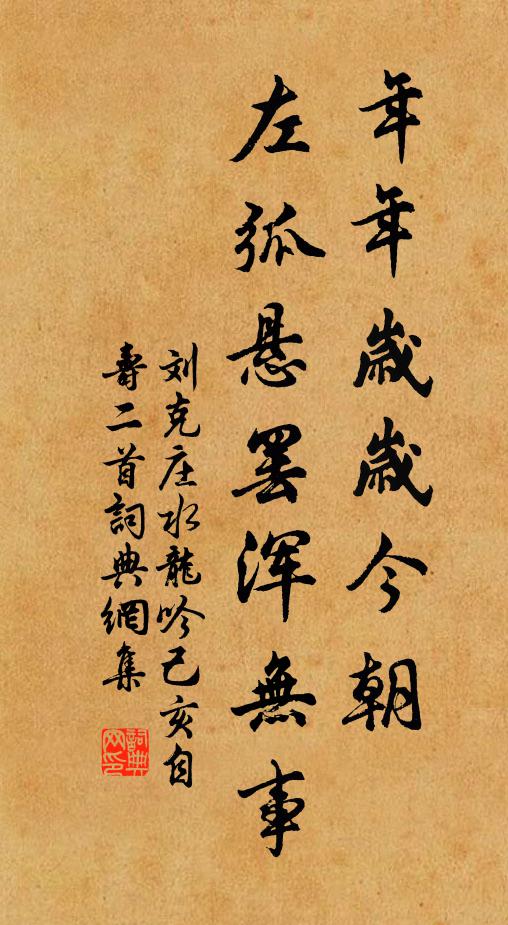 年年歲歲今朝
左弧悬罢浑無事
刘克庄水龍吟己亥自
壽二首詞典網集
詞典網印